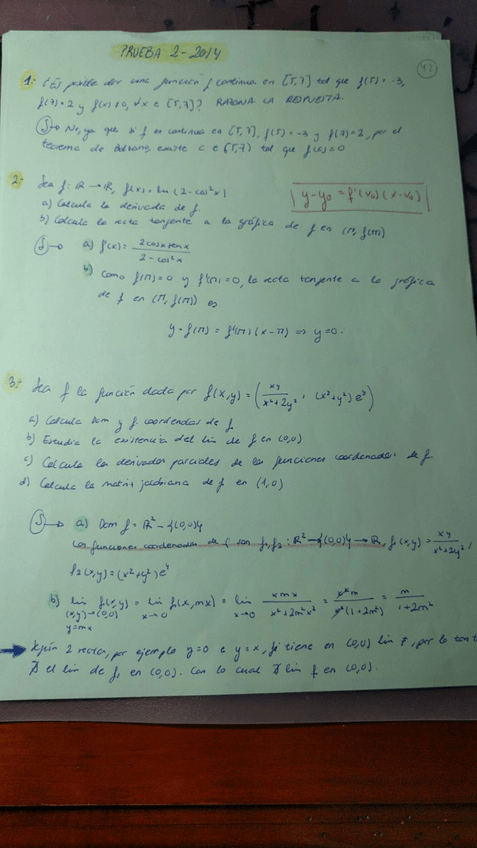 PRUEBA 2-2014
42
1. ¿Es posible dar una función f continua en [5,7] tal que f(5)=-3,
f(7)=2 y f(x)≠0, ∀x∈[5,7]? RAZONA LA RESPUESTA.
S→ No, ya que si f es continua en [5,7], f(5)=-3 y f(7)=2, por el
teorema de Bolzano, existe c∈(5,7) tal que f(c)=0
2. Sea f: R→R, f(x)=ln(2-cos²x)
y-y₀ = f'(x₀)(x-x₀)
a) Calcula la derivada de f.
b) Calcula la recta tangente a la gráfica de f en (π, f(π))
S→ a) f'(x) = 2cosx senx / 2-cos²x
b) Como f(π)=0 y f'(π)=0, la recta tangente a la gráfica
de f en (π, f(π)) es
y-f(π) = f'(π)(x-π) => y=0.
3. Sea f la función dada por f(x,y) = (xy / x²+2y², (x²+y²)eʸ)
a) Calcula Dom y f. coordenadas de f
b) Estudia la existencia del lim de f en (0,0)
c) Calcula las derivadas parciales de las funciones coordenadas de f
d) Calcula la matriz jacobiana de f en (1,0)
S→ a) Dom f = R²-{(0,0)}
Las funciones coordenadas de f son f₁,f₂: R²-{(0,0)}→R, f₁(x,y) = xy / x²+2y²,
f₂(x,y) = (x²+y²)eʸ
b) lim (x,y)→(0,0) y=mx f₁(x,y) = lim x→0 f₁(x,mx) = lim x→0 xmx / x²+2m²x² = x²m / x²(1+2m²) = m / 1+2m²
→ Según 2 rectas, por ejemplo y=0 e y=x, f₁ tiene en (0,0) lim ≠, por lo tan
∄ el lim de f₁ en (0,0). Con lo cual ∄ lim f en (0,0).